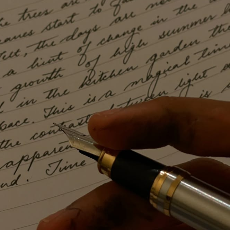 trees are
leaves start to fa
Yet, the days are no
a hint of change in the
growth of high summer
in the kitchen garden the
pace. This is a magical time
the contrast between light
apparen
nd. Time